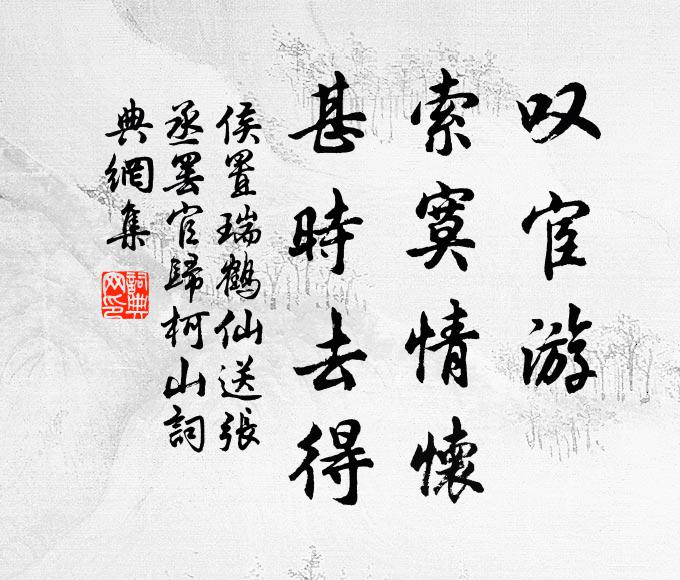 叹宦游
索寞情懷
甚時去得
侯置瑞鶴仙送張
丞罢官歸柯山詞
典網集
詞典
网印